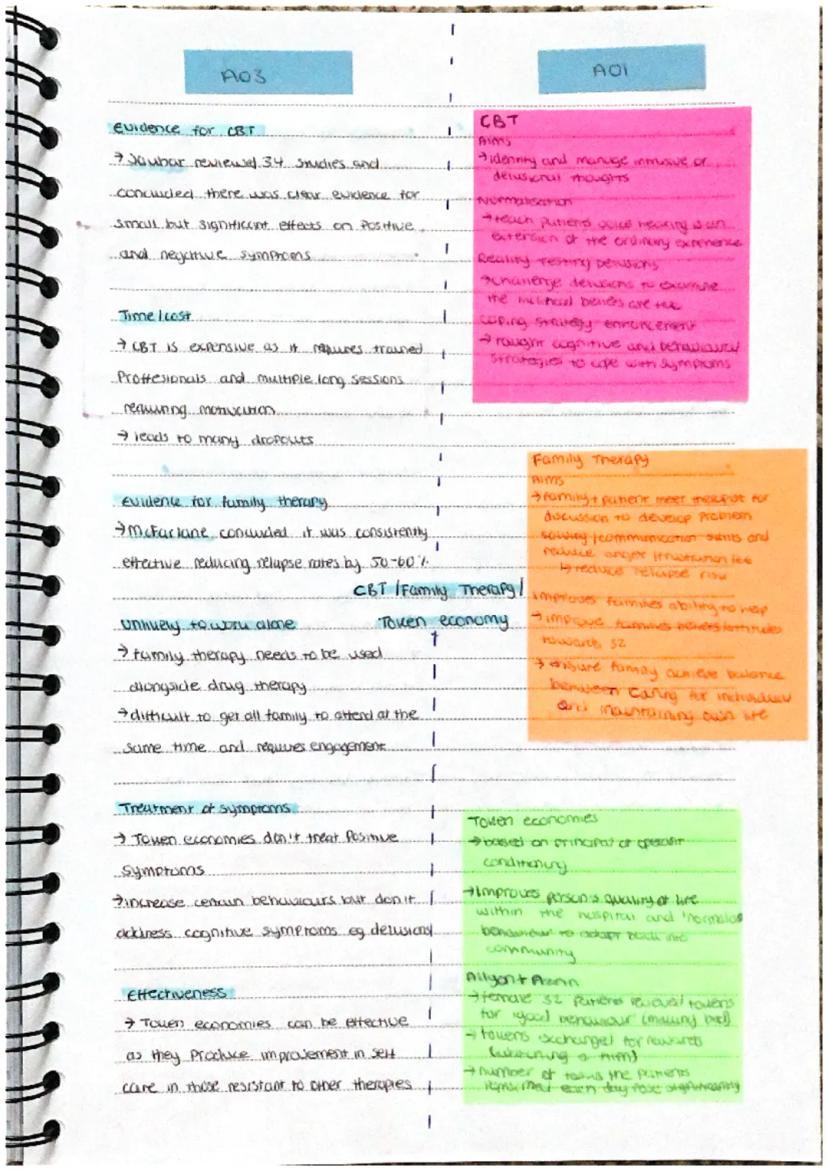 AO3
Evidence for CBT
→ Jauhar reviewed 34 studies and
concluded there was clear evidence for
small but significant effects on positive
and negative symptoms
Time/cost
→ CBT is expensive as it requires trained
Proffesionals and multiple long sessions
requiring motivation
→ leads to many dropouts
Evidence for family therapy
→ McFarlane concluded it was consistently
effective reducing relapse rates by 50-60%
CBT/Family Therapy/
Token economy
Unlikely to work alone
→ family therapy needs to be used
alongside drug therapy
→ difficult to get all family to attend at the
same time and requires engagement
Treatment of symptoms
→ Token economies don't treat positive
symptoms
→ increase certain behaviours but don't
address cognitive symptoms eg delusions
Effectiveness
→ Token economies can be effective
as they produce improvement in self
care in those resistant to other therapies
AO1
CBT
Aims
→ identify and manage intrusive or
delusional thoughts
Normalisation
→ teach patients voice hearing is an
extension of the ordinary experience
Reality Testing Delusions
→ challenge delusions to examine
the beliefs are
coping strategy enhancement
→ taught cognitive and behavioural
strategies to cope with symptoms
Family Therapy
Aims
→ family + patient meet therapist for
discussion to develop problem
solving/communication skills and
reduce anger/frustration
↳ reduce relapse risk
Improves families ability to help
→ improve families beliefs/attitudes
towards SZ
→ ensure family achieve balance
between caring for individual
and maintaining own life
Token economies
→ based on principal of operant
conditioning
→ Improves person's quality of life
within the hospital and 'normalise
behaviour' to adapt back into
community
Allyon + Azrin
→ female SZ patients received tokens
for 'good' behaviour (making bed)
→ tokens exchanged for rewards
(watching a film)
→ number of tasks the patients
performed each day rose significantly